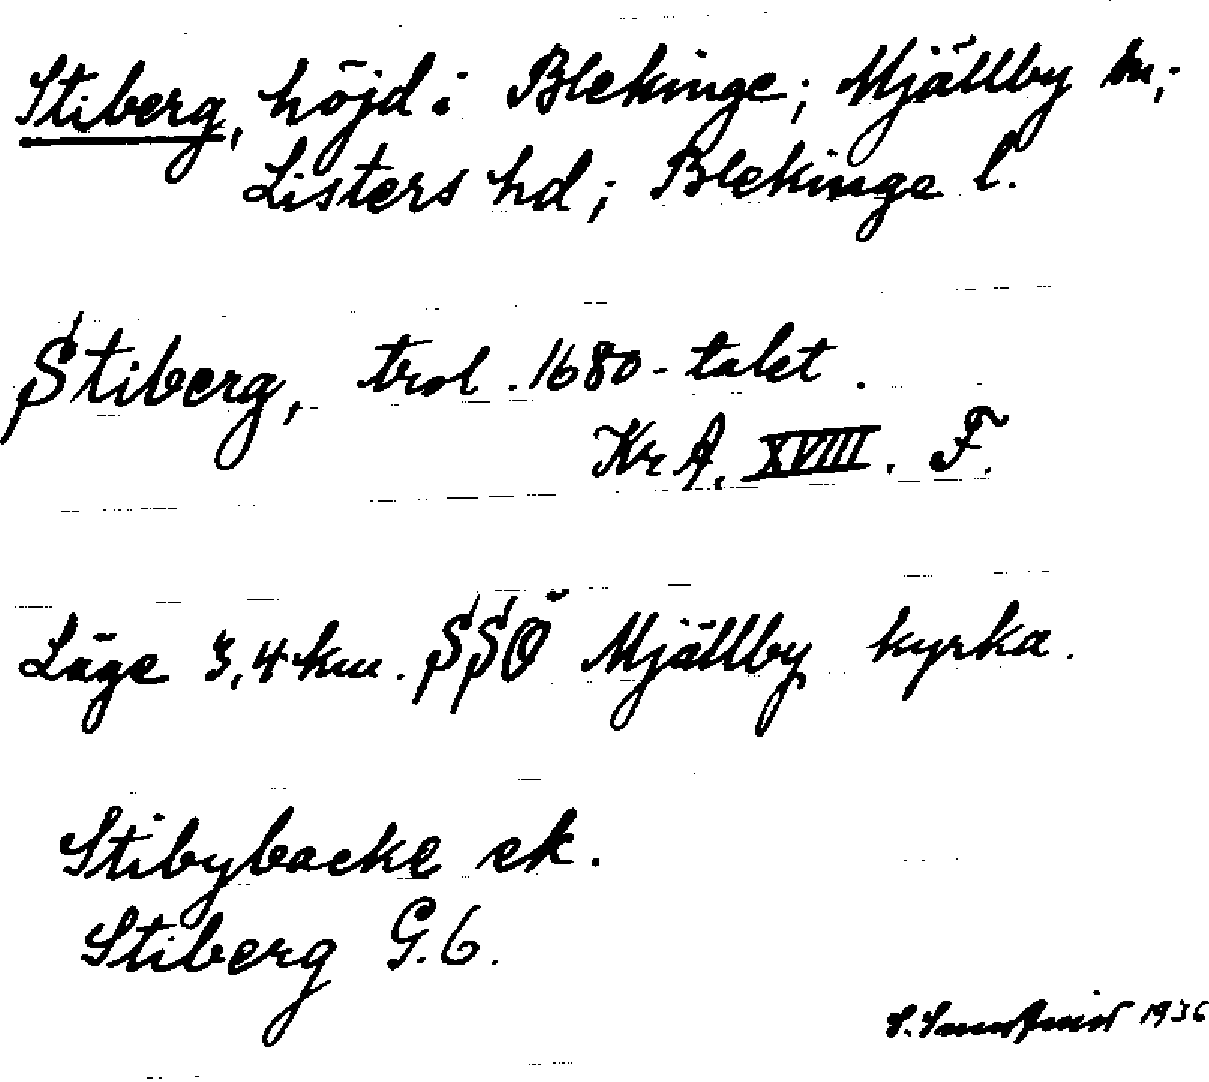 Stiberg, höjd: Blekinge; Mjällby sn;
Listers hd; Blekinge l.
Stiberg, trol. 1680-talet.
Kr A. XVIII. F.
Läge 3,4 km. SSÖ Mjällby kyrka.
Stibybacke ek.
Stiberg G.6.
1936